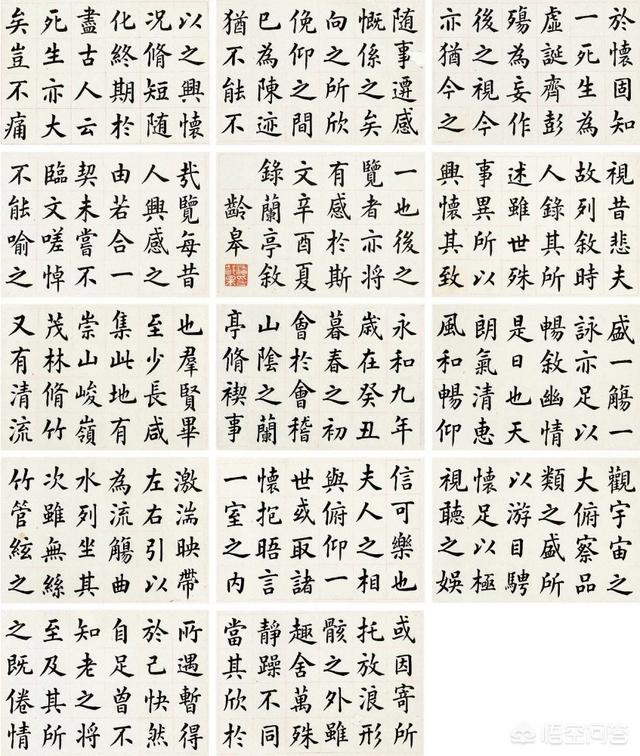 永和九年
歲在癸丑
暮春之初
會於會稽
山陰之蘭
亭脩禊事
也羣賢畢
至少長咸
集此地有
崇山峻嶺
茂林脩竹
又有清流
激湍映帶
左右引以
為流觴曲
水列坐其
次雖無絲
竹管絃之
盛一觴一
詠亦足以
暢敘幽情
是日也天
朗氣清惠
風和暢仰
觀宇宙之
大俯察品
類之盛所
以游目騁
懷足以極
視聽之娛
信可樂也
夫人之相
與俯仰一
世或取諸
懷抱晤言
一室之內
或因寄所
托放浪形
骸之外雖
趣舍萬殊
靜躁不同
當其欣於
所遇暫得
於己快然
自足曾不
知老之將
至及其所
之既倦情
隨事遷感
慨係之矣
向之所欣
俛仰之間
已為陳迹
猶不能不
以之興懷
况脩短隨
化終期於
盡古人云
死生亦大
矣豈不痛
哉覽每昔
人興感之
由若合一
契未嘗不
臨文嗟悼
不能喻之
於懷固知
一死生為
虛誕齊彭
殤為妄作
後之視今
亦猶今之
視昔悲夫
故列敘時
人錄其所
述雖世殊
事異所以
興懷其致
一也後之
覽者亦將
有感於斯
文辛酉夏
錄蘭亭敘
齡皋
悟空问答